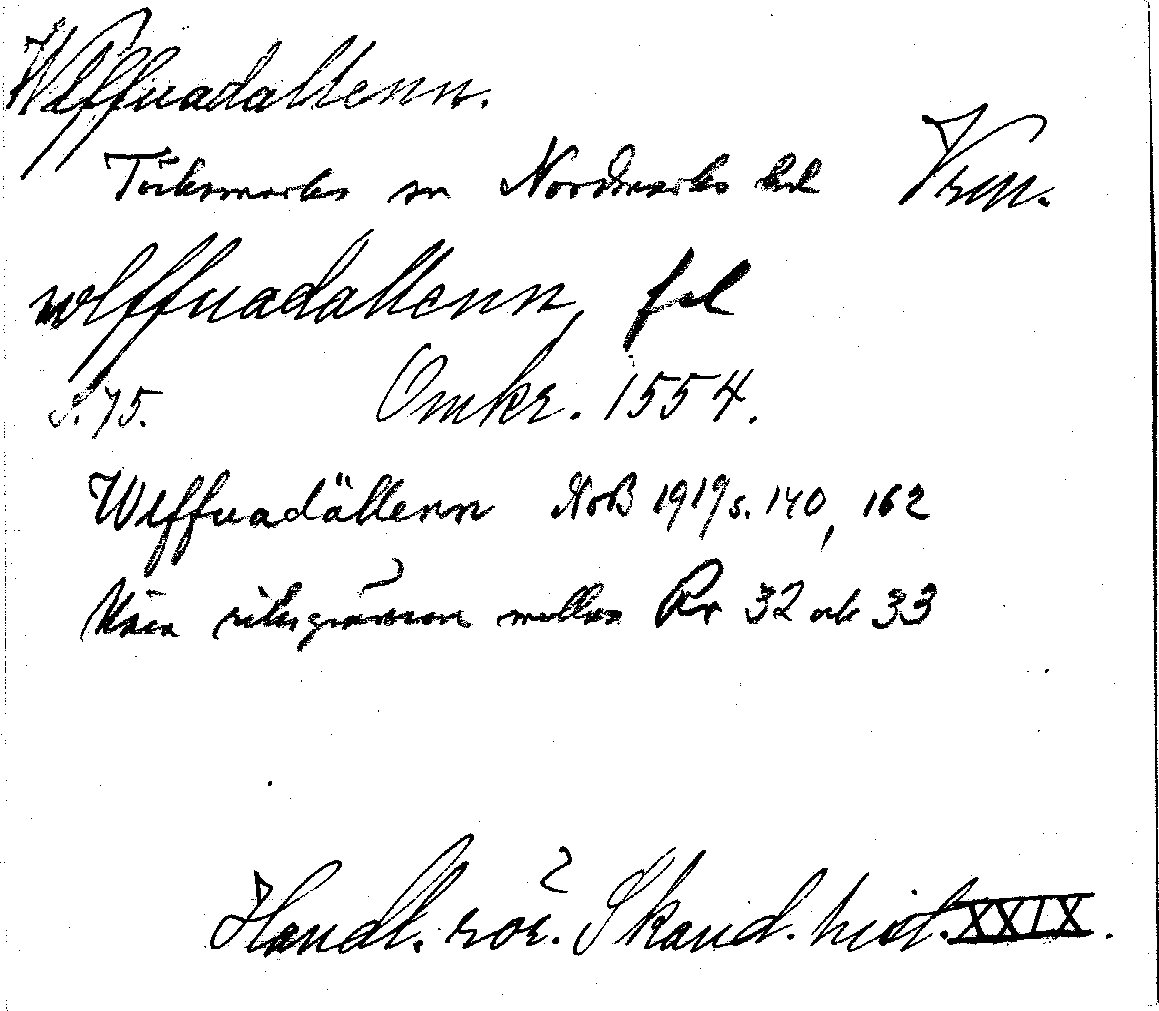 Wlffuadaltenn.
Töcksmarks sn Nordmarks hd Vrm.
wlffuadaltenn, fel
S. 75. Omkr. 1554.
Wlffuadältenn NoB 1919 s. 140, 162
Nära riksgränsen mellan Rr 32 och 33
Handl. rör. Skand. hist. XXIX.